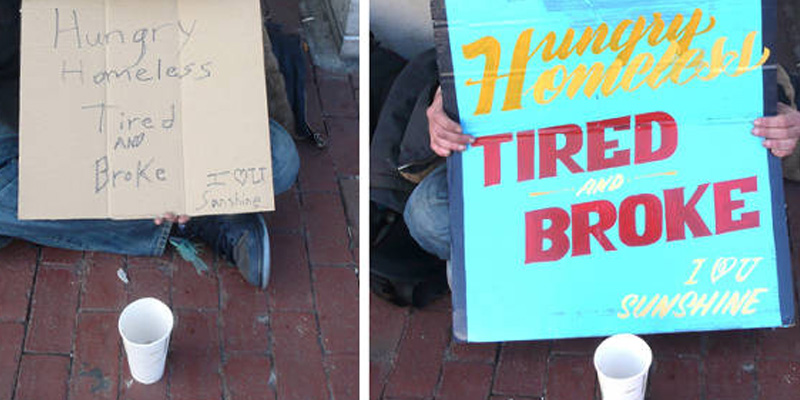 Hungry
Homeless
Tired
AND
Broke
I ♡ U
Sunshine
Hungry
Homeless
TIRED
AND
BROKE
I ♡ U
SUNSHINE